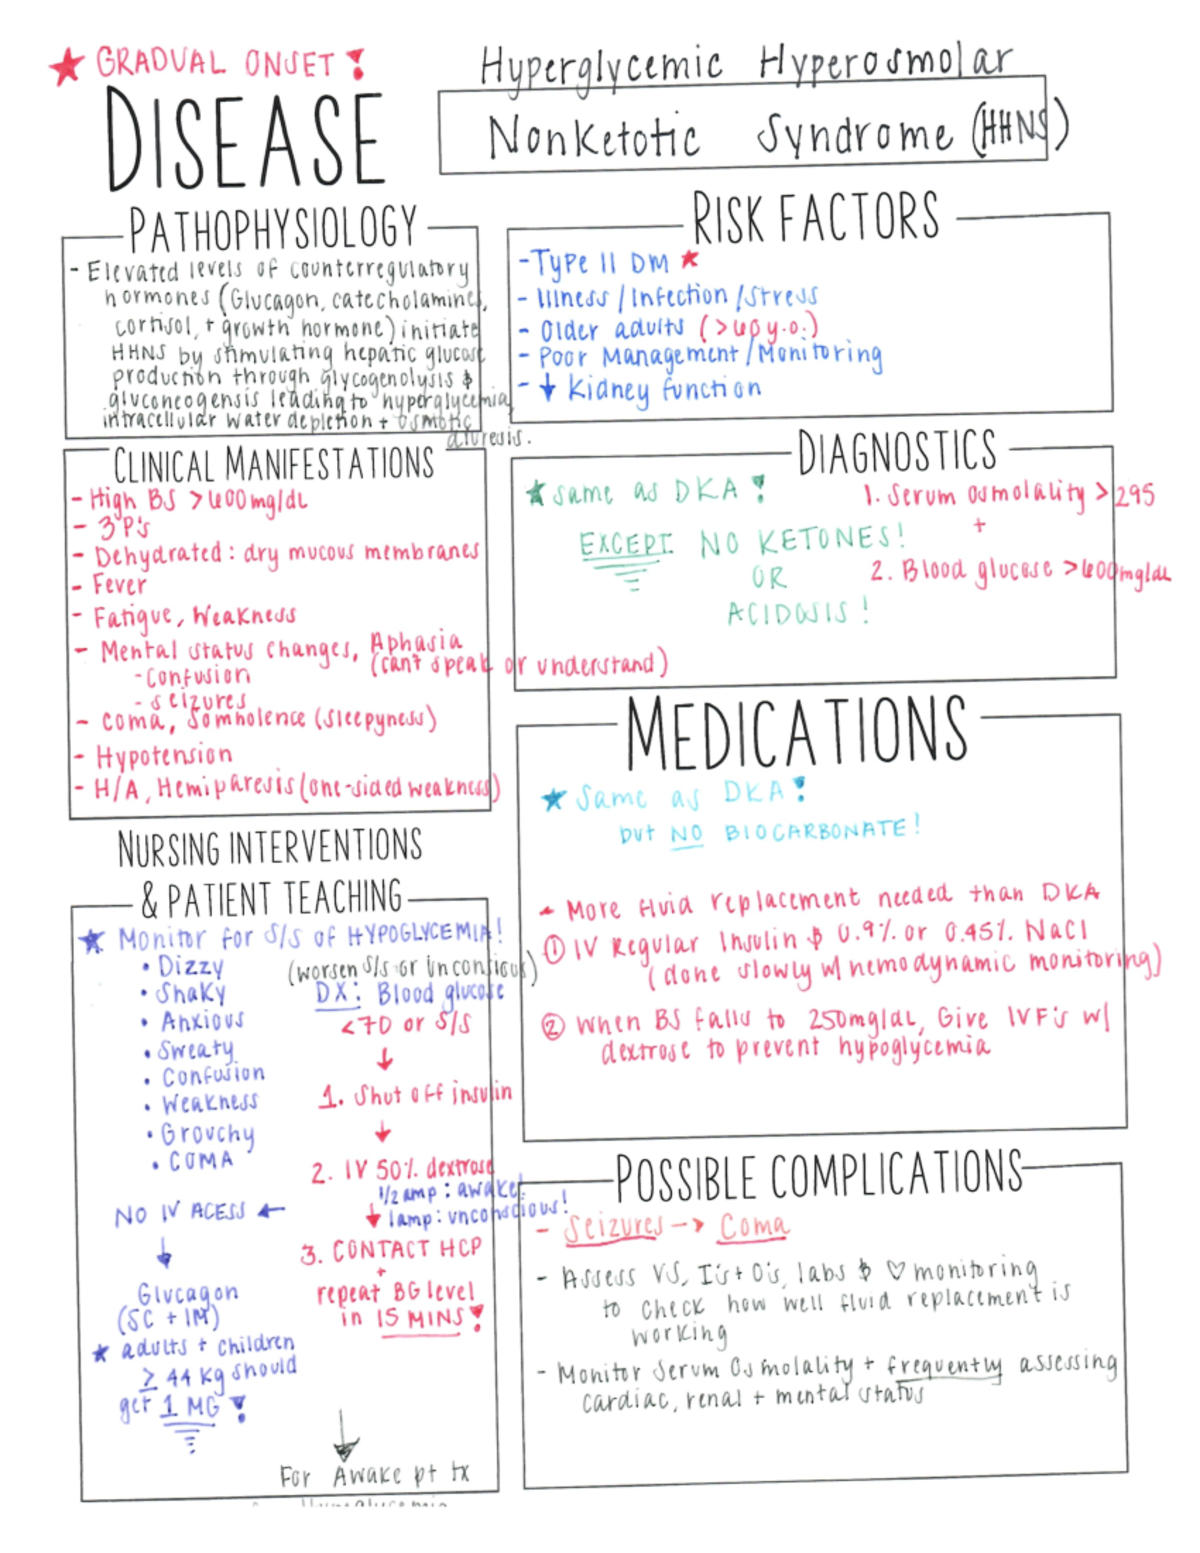 ★ GRADUAL ONSET!
DISEASE
Hyperglycemic Hyperosmolar
NonKetotic Syndrome (HHNS)
PATHOPHYSIOLOGY
- Elevated levels of counterregulatory
hormones (Glucagon, catecholamines,
cortisol, + growth hormone) initiate
HHNS by stimulating hepatic glucose
production through glycogenolysis &
gluconeogensis leading to hyperglycemia,
intracellular water depletion + osmotic
diuresis.
RISK FACTORS
- Type II DM ★
- Illness / Infection / Stress
- Older adults (>60 y.o.)
- Poor Management / Monitoring
- ↓ Kidney function
CLINICAL MANIFESTATIONS
- High BS >600mg/dL
- 3 P's
- Dehydrated: dry mucous membranes
- Fever
- Fatigue, Weakness
- Mental status changes, Aphasia
(can't speak or understand)
- Confusion
- seizures
- coma, Somnolence (sleepyness)
- Hypotension
- H/A, Hemiparesis (one-sided weakness)
DIAGNOSTICS
★ same as DKA!
EXCEPT NO KETONES!
OR
ACIDOSIS!
1. Serum Osmolality >295
+
2. Blood glucose >600mg/dL
MEDICATIONS
★ Same as DKA!
but NO BIOCARBONATE!
- More fluid replacement needed than DKA
① IV Regular Insulin & 0.9% or 0.45% NaCl
(done slowly w/ hemodynamic monitoring)
② When BS falls to 250mg/dL, Give IVF's w/
dextrose to prevent hypoglycemia
NURSING INTERVENTIONS
& PATIENT TEACHING
★ Monitor for S/S of HYPOGLYCEMIA!
• Dizzy
• Shaky
• Anxious
• Sweaty
• Confusion
• Weakness
• Grouchy
• COMA
(worsen S/S or unconscious)
DX: Blood glucose
<70 or S/S
↓
1. Shut off insulin
↓
2. IV 50% dextrose
1/2 amp: awake!
↓ 1amp: unconscious!
NO IV ACESS ←
↓
Glucagon
(SC + IM)
★ adults + children
≥ 44 kg should
get 1 MG!
3. CONTACT HCP
+
repeat BG level
in 15 MINS!
↓
For Awake pt tx
POSSIBLE COMPLICATIONS
- Seizures → Coma
- Assess VS, I's + O's, labs & ♡ monitoring
to check how well fluid replacement is
working
- Monitor Serum Osmolality + frequently assessing
cardiac, renal + mental status